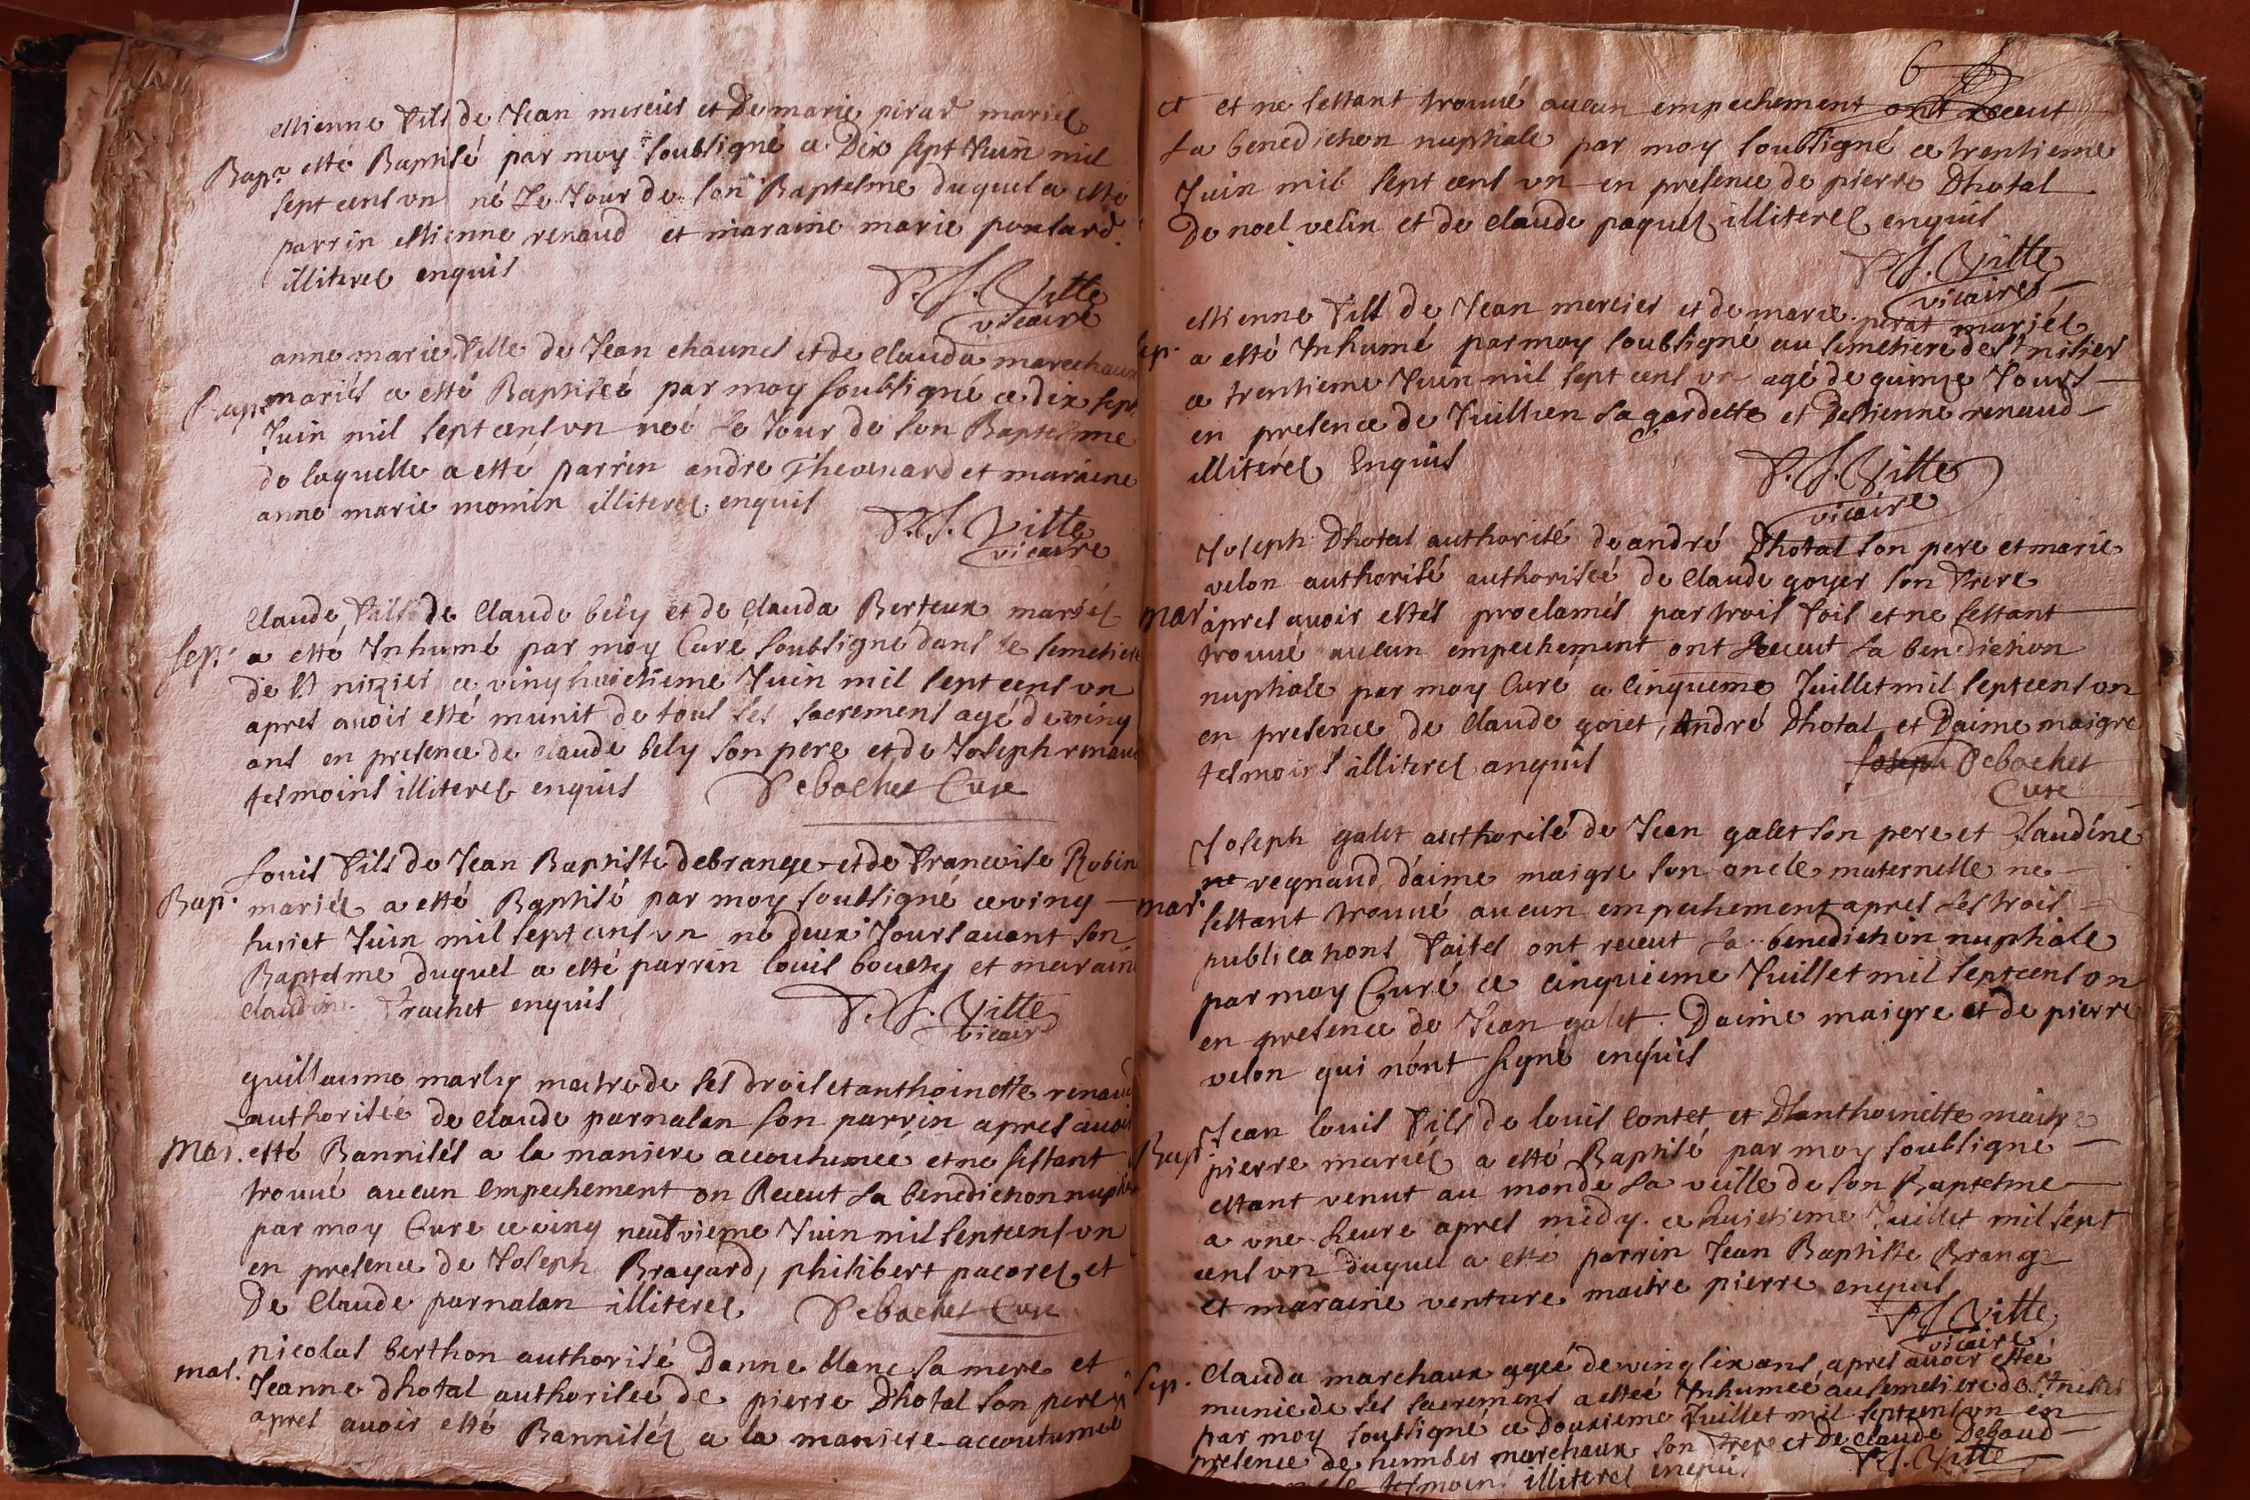 estienne fils de Jean mercier et De marie pirad mariés
Bap. a esté Baptisé par moy soubsigné ce Dix sept Juin mil
sept cens un né Le Jour de son Baptesme duquel a esté
parrin estienne renaud et maraine marie ponsard
illiteres enquis
P. J. Vitte
vicaire
anne marie fille de Jean chaunel et de Clauda marechaux
Bap. mariés a esté Baptiseé par moy soubsigné ce dix sept
Juin mil sept cens un neé Le Jour de son Baptesme
de laquelle a esté parrin andre Thevenard et maraine
anne marie momin illiteres enquis
P. J. Vitte
vicaire
Claude fils de Claude bely et de Clauda Berteux mariés
Sep. a esté Inhumé par moy Curé soubsigné dans le semetiere
de St nizier ce ving huictieme Juin mil sept cens un
apres avoir esté munit de tous ses sacremens agé de ving
ans en presence de Claude bely son pere et de Joseph renaud
tesmoins illiteres enquis Debochet Curé
Louis fils de Jean Baptiste debrange et de francoise Robin
Bap. mariés a esté Baptisé par moy soubsigné ce ving
huict Juin mil sept cens un né deux Jours avant son
Baptesme duquel a esté parrin louis bouchy et maraine
claudine frachet enquis
P. J. Vitte
vicaire
guillaume marly maitre de ses drois et anthoinette renaud
authoriseé de Claude parnalan son parrin apres avoir
Mar. esté Bannisés a la maniere accoutumeé et ne sestant
trouvé aucun empechement on Receut La benediction nuptiale
par moy Curé ce ving neufvieme Juin mil sept cens un
en presence de Joseph Brayard, philibert pacorel et
De Claude parnalan illiteres Debochet Curé
mar. nicolas berthon authorisé Danne blanc sa mere et
Jeanne dhotal authoriseé de pierre Dhotal son pere
apres avoir esté Bannisés a la maniere accoutumeé
6
et et ne sestant trouvé aucun empechement ont Receut
La benediction nuptiale par moy soubsigné ce trentieme
Juin mil sept cens un en presence de pierre Dhotal
De noel velin et de Claude paquet illiteres enquis
P. J. Vitte
vicaire
estienne fils de Jean mercier et de marie pirat mariés
sep. a esté Inhumé par moy soubsigné au semetiere de St nisier
ce trentieme Juin mil sept cens un agé de quinze Jours
en presence de Juillien Lagardette et Destienne renaud
illiteres Enquis
P. J. Vitte
vicaire
Joseph Dhotal authorisé de andré Dhotal son pere et marie
velon authorisé authoriseé de Claude goyer son frere
mar apres avoir estés proclamés par trois fois et ne sestant
trouvé aucun empechement ont Receut La benediction
nuptiale par moy Curé ce cinquieme Juillet mil sept cens un
en presence de Claude goiet, André Dhotal et Daime maigre
tesmoins illiteres anquis Joseph Debochet
Curé
Joseph galet authorisé de Jean galet son pere et Claudine
ne regnaud d'aime maigre son oncle maternelle ne
mar. sestant trouvé aucun empechement apres Les trois
publications faites ont receut La benediction nuptiale
par moy Curé ce cinquieme Juillet mil sept cens un
en presence de Jean galet. Daime maigre et de pierre
velon qui n'ont signé enquis
Jean louis fils de louis Contet et Danthoinette maitre
Bap. pierre mariés a esté Baptisé par moy soubsigné
estant venut au monde La veille de son Baptesme
a une heure apres midy. ce huictieme Juillet mil sept
cens un duquel a esté parrin Jean Baptiste Brange
et maraine venture maitre pierre enquis
P. J. Vitte
vicaire
sep. Clauda marchaux ageé de ving six ans apres avoir esteé
munie de ses sacremens a esteé Inhumeé au semetiere de St nisier
par moy soubsigné ce Douzieme Juillet mil sept cens un en
presence de humber marchaux son frere et De Claude Debaud
tesmoins illiteres enquis P. J. Vitte